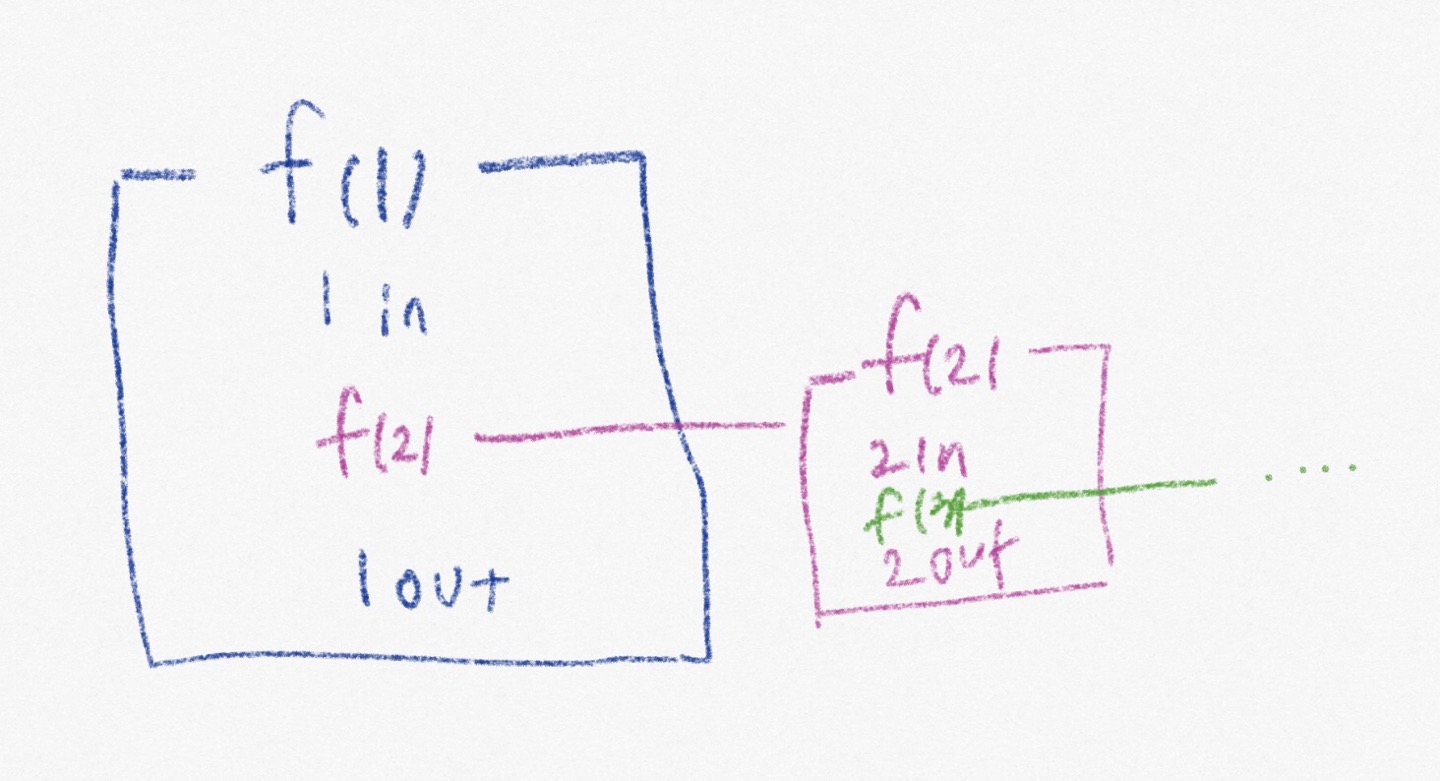 f(1)
1 in
f(2)
1 out
f(2)
2 in
f(3)
2 out